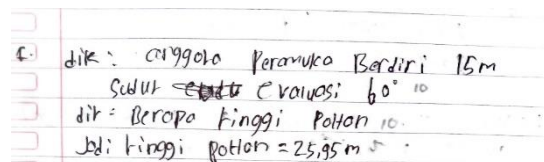 1. dik : anggota Peramuka Berdiri 15m
Sudut evaluasi 60° 10
dit = Berapa tinggi Pohon 10
Jadi tinggi Pohon = 25,95 m 5